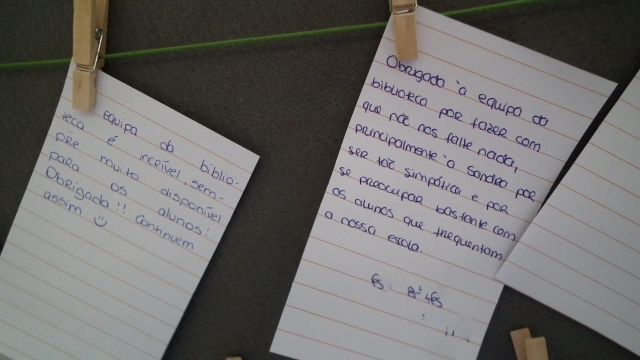 A equipa da biblio-
teca é incrível, sem-
pre muito disponível
para os alunos!
Obrigada!! Continuem
assim ☺
Obrigada à equipa da
biblioteca por fazer com
que não nos falte nada,
principalmente à Sandra por
ser tão simpática e por
se preocupar bastante com
os alunos que frequentam
a nossa escola.